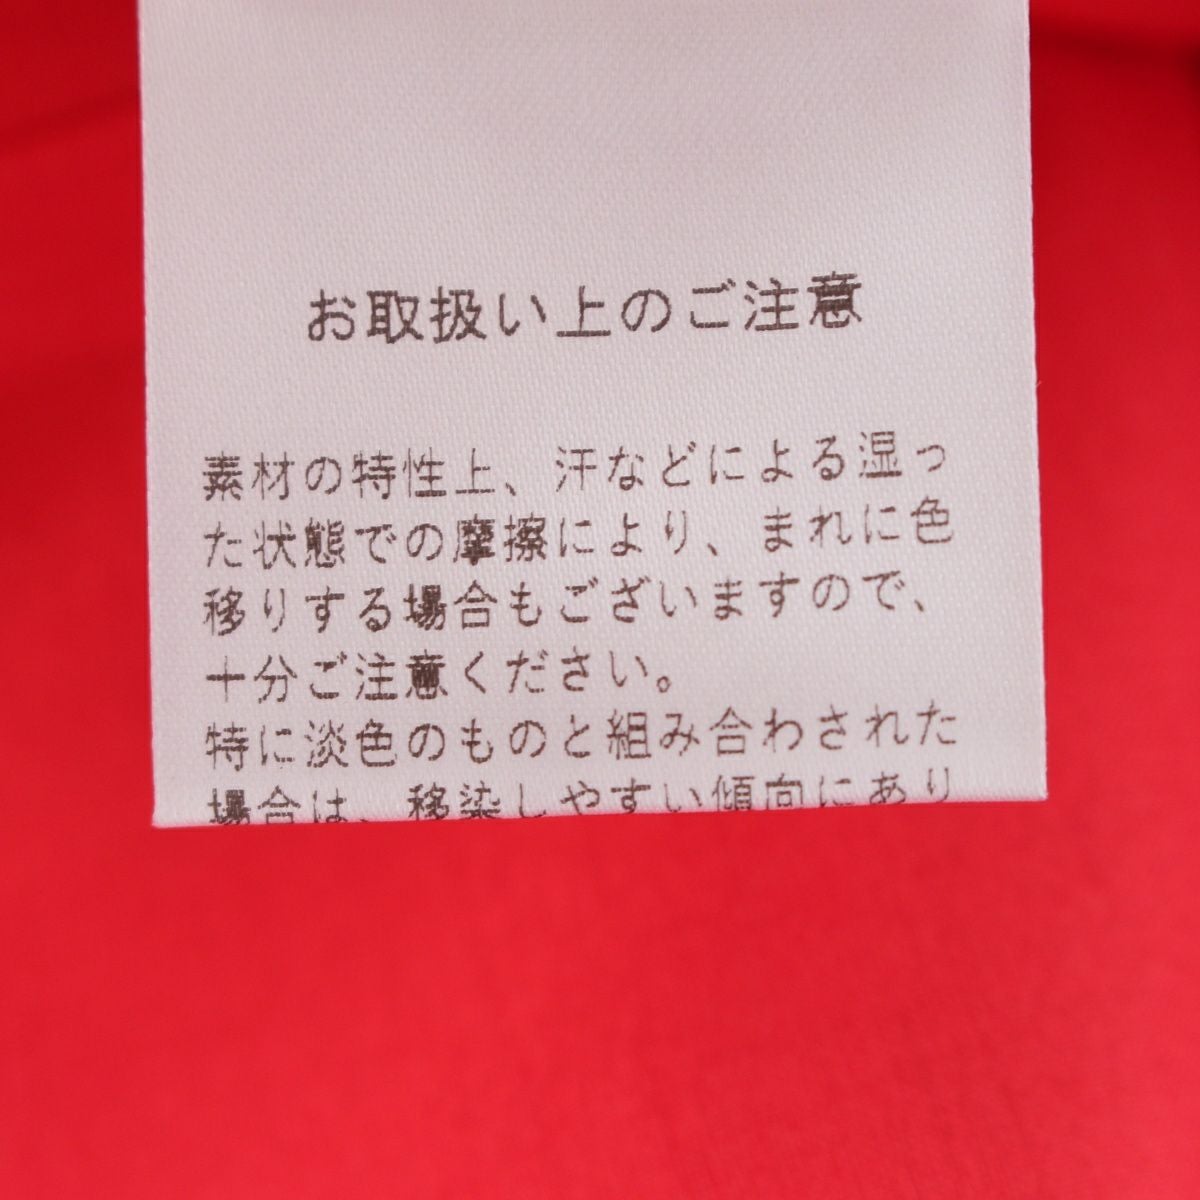 お取扱い上のご注意
素材の特性上、汗などによる湿っ
た状態での摩擦により、まれに色
移りする場合もございますので、
十分ご注意ください。
特に淡色のものと組み合わされた
場合は、移染しやすい傾向にあり